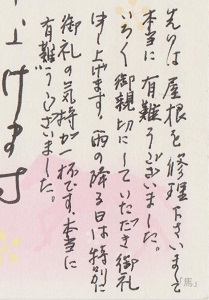 先日は屋根を修理下さいまして
本当に有難うございました。
いろ〱御親切にしていただき御礼
申し上げます。雨の降る日は特別に
御礼の気持が一杯です。本当に
有難うございました。
上げます
「馬」